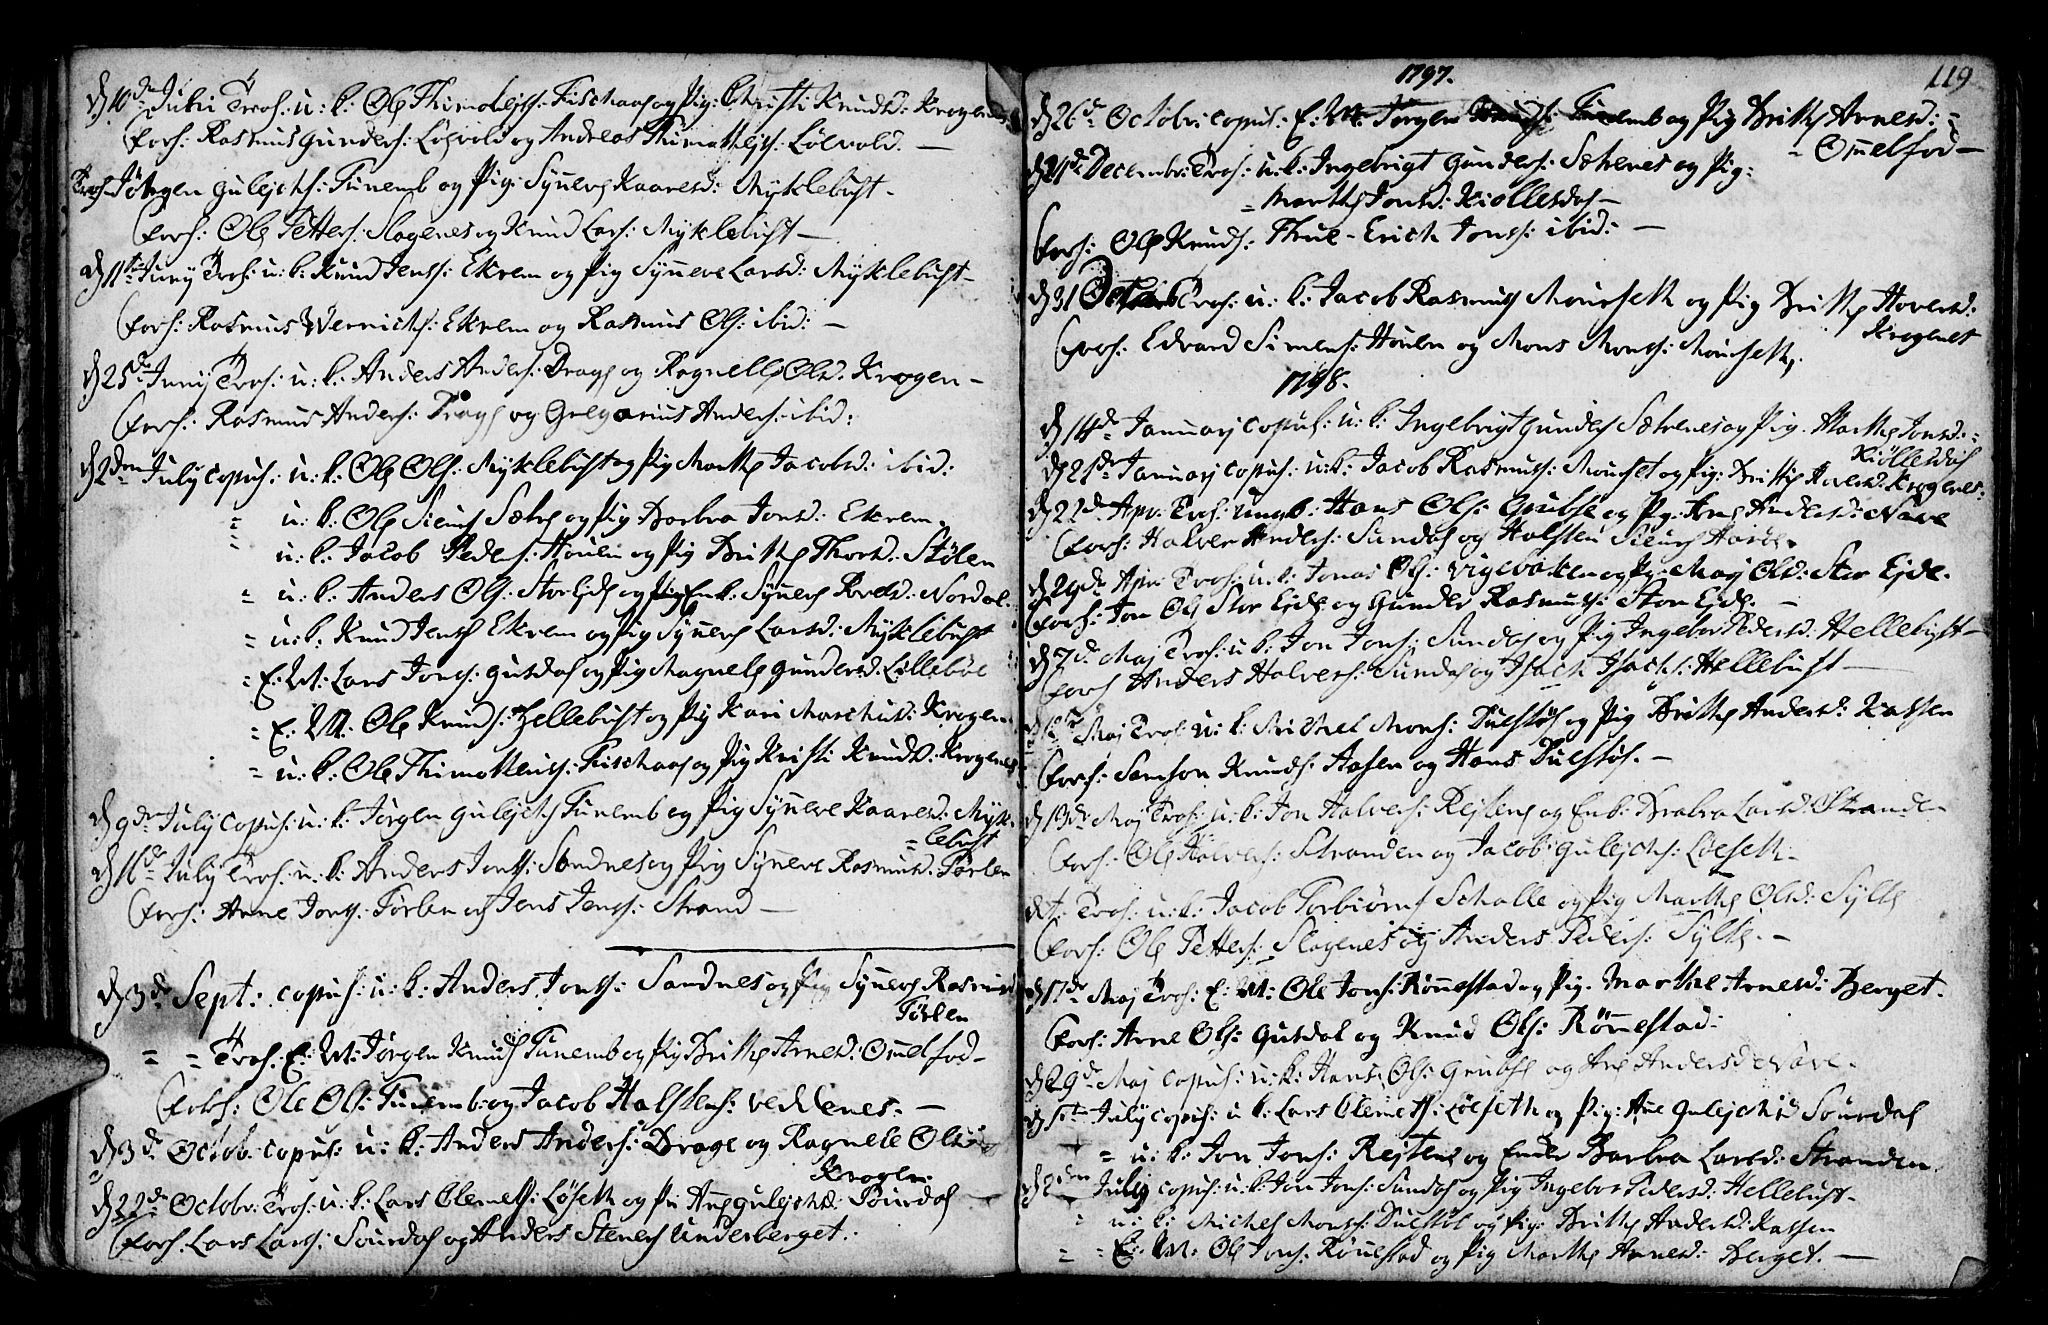 d 10de Juni Trol: u: k: Ole Thimotejs: Fischaas og Pig: Christi Knudsd: Krogenes
Forl: Rasmus Gunders: Løevold og Andreas Thimottejs: Løevold. —
Trol: Jørgen Gulejchs: Tunemb og Pig: Synnevs Kaaresd: Myklebust.
Forl: Ole Petters: Slagenes og Knud Lars: Myklebust —
d 11te Junij Trol: u: k: Knud Jens: Ekrem og Pig Synneve Larsd: Myklebust —
Forl: Rasmus Werrichs: Ekrem og Rasmus Ols: ibid: —
d 25de Junij Trol: u: k: Anders Anders: Drage og Ragnelle Olsd. Krogen —
Forl: Rasmus Anders: Drage og Gregorius Anders: ibid:
d 2den July Copul: u: k: Ole Ols: Myklebust og Pig Marthe Jacobsd: ibid:
= u: k: Ole Siurs Sætre og Pig Barbra Jonsd: Ekrem.
= u: k: Jacob Peders: Houen og Pig Britthe Thorsd. Stølen
= u: k: Anders Ols: Storejde og Enk: Synnevs Poelsd: Nordal.
= u: k: Knud Jens Ekrem og Pig Synnevs Larsd: Myklebust
= E: M: Lars Jons: Gusdal og Pig Magnele Gundersd: Lillebøe
= E: M: Ole Knuds: Hellebust og Pig Kari Marchusd: Krogen
= u: k: Ole Thimotteus: Fischaas og Pig Kristi Knudsd: Krogenes
d 9de July Copul: u: k: Jørgen Gulejchs Tunemb og Pig Synneve Kaaresd: Myk-
= lebust
d 16de July Trol: u: k: Anders Jons: Sandnes og Pig Synneve Rasmusd. Førlen
Forl: Arne Jons: Førlen og Jens Jens: Strand —
d 3de Sept: Copul: u: k: Anders Jons: Sandnes og Pig Synnevs Rasmusd
Førlen
= = Trol: E: M: Jørgen Knuds Tunemb og Pig Britthe Arnesd: Omelfod —
Forl: Ole Ols: Tunemb: og Jacob Halstens: Veddenes. —
d 3de Octob: Copul: u: k: Anders Anders: Drage og Ragnele Olsd
Krogen.
d 22de Octobr: Trol: u: k: Lars Clemets: Løeseth og Pi: Ane Gulejchsd: Sourdal —
Forl: Lars Lars: Sourdal og Anders Stenes Underberget.
1797.
119
d 26de Octobr: Copul: E: M: Jørgen Knuds: Tunemb og Pig Britthe Arnesd: =
= Omelfod —
d 31de Decembr: Trol: u: k: Ingebrigt Gunders: Sætrenes og Pig:
= Marthe Jonsd: Kiøllesdal —
Forl: Ole Knuds: Thue - Erich Jons: ibid: —
d 31 Trol: u: k: Jacob Rasmus Mourseth og Pig Britthe Hoversd:
Krogenes
Forl: Edvard Simens: Houen og Mons Mons: Mourseth,
1798.
d 14de Januarj Copul: u: k: Ingebrigt Gunders Sætrenes og Pig. Marthe Jonsd: =
Kiøllesdal
d 21de Januarj Copul: u: k: Jacob Rasmus: Mourset og Pig: Britthe Hoversd: Krogenes.
d 22de Apr: Trol: Ung k: Hans Ols: Grubse og Pig: Ane Andersd: Nave
Forl: Halver Anders: Sundal og Halsten Siurs Harøe.
d 29de Apr: Trol: u: k: Jonas Ols: Vigebakken og Pig: Marj Olsd: Stor Ejde.
Forl: Jon Ols Stor Ejde og Gunder Rasmus: Stor Ejde. —
d 7de Maj Trol: u: k: Jon Jons: Sundal og Pig Ingebor Pedersd: Hellebust —
Forl Anders Halvers: Sundal og Isach Isachs: Hellebust —
Maj Trol: u: k: Michel Mons: Dulstøl og Pig Britthe Andersd. Kassen
Forl: Samson Knuds: Aasen og Hans Dulstøl. —
d 13de Maj Trol: u: k: Jon Halvers: Rejtene og Enk: Brabra Larsd. Stranden
Forl: Ole Halvers: Stranden og Jacob Gulejchs: Løeseth —
Trol: u: k: Jacob Torbiørns Schalle og Pig Marthe Olsd: Sylte
Forl: Ole Petters: Slagenes og Anders Peders: Sylte. —
d 17de Maj Trol: E: M: Ole Jons: Rønnestad og Pig. Marthe Arnesd: Berget.
Forl: Arne Ols: Gusdal og Knud Ols: Rønnestad:
d 29de Maj Copul: u: k: Hans Ols: Grubse og Ane Andersd Nave.
d 1te July Copul: u k: Lars Clemets: Løeseth og Pig: Ane Gulejchsd Sourdal
= u: k: Jon Jons: Rejtene og Enke Barbra Larsd: Stranden.
d 2den July Copul: u: k: Jon Jons: Sundal og Pig Ingebor Pedersd: Hellebust —
= u: k: Michel Mons: Dulstøl og Pig: Britthe Andersd: Kassen
= = E: M: Ole Jons: Rønnestad og Pig Marthe Arnesd: Berget. —